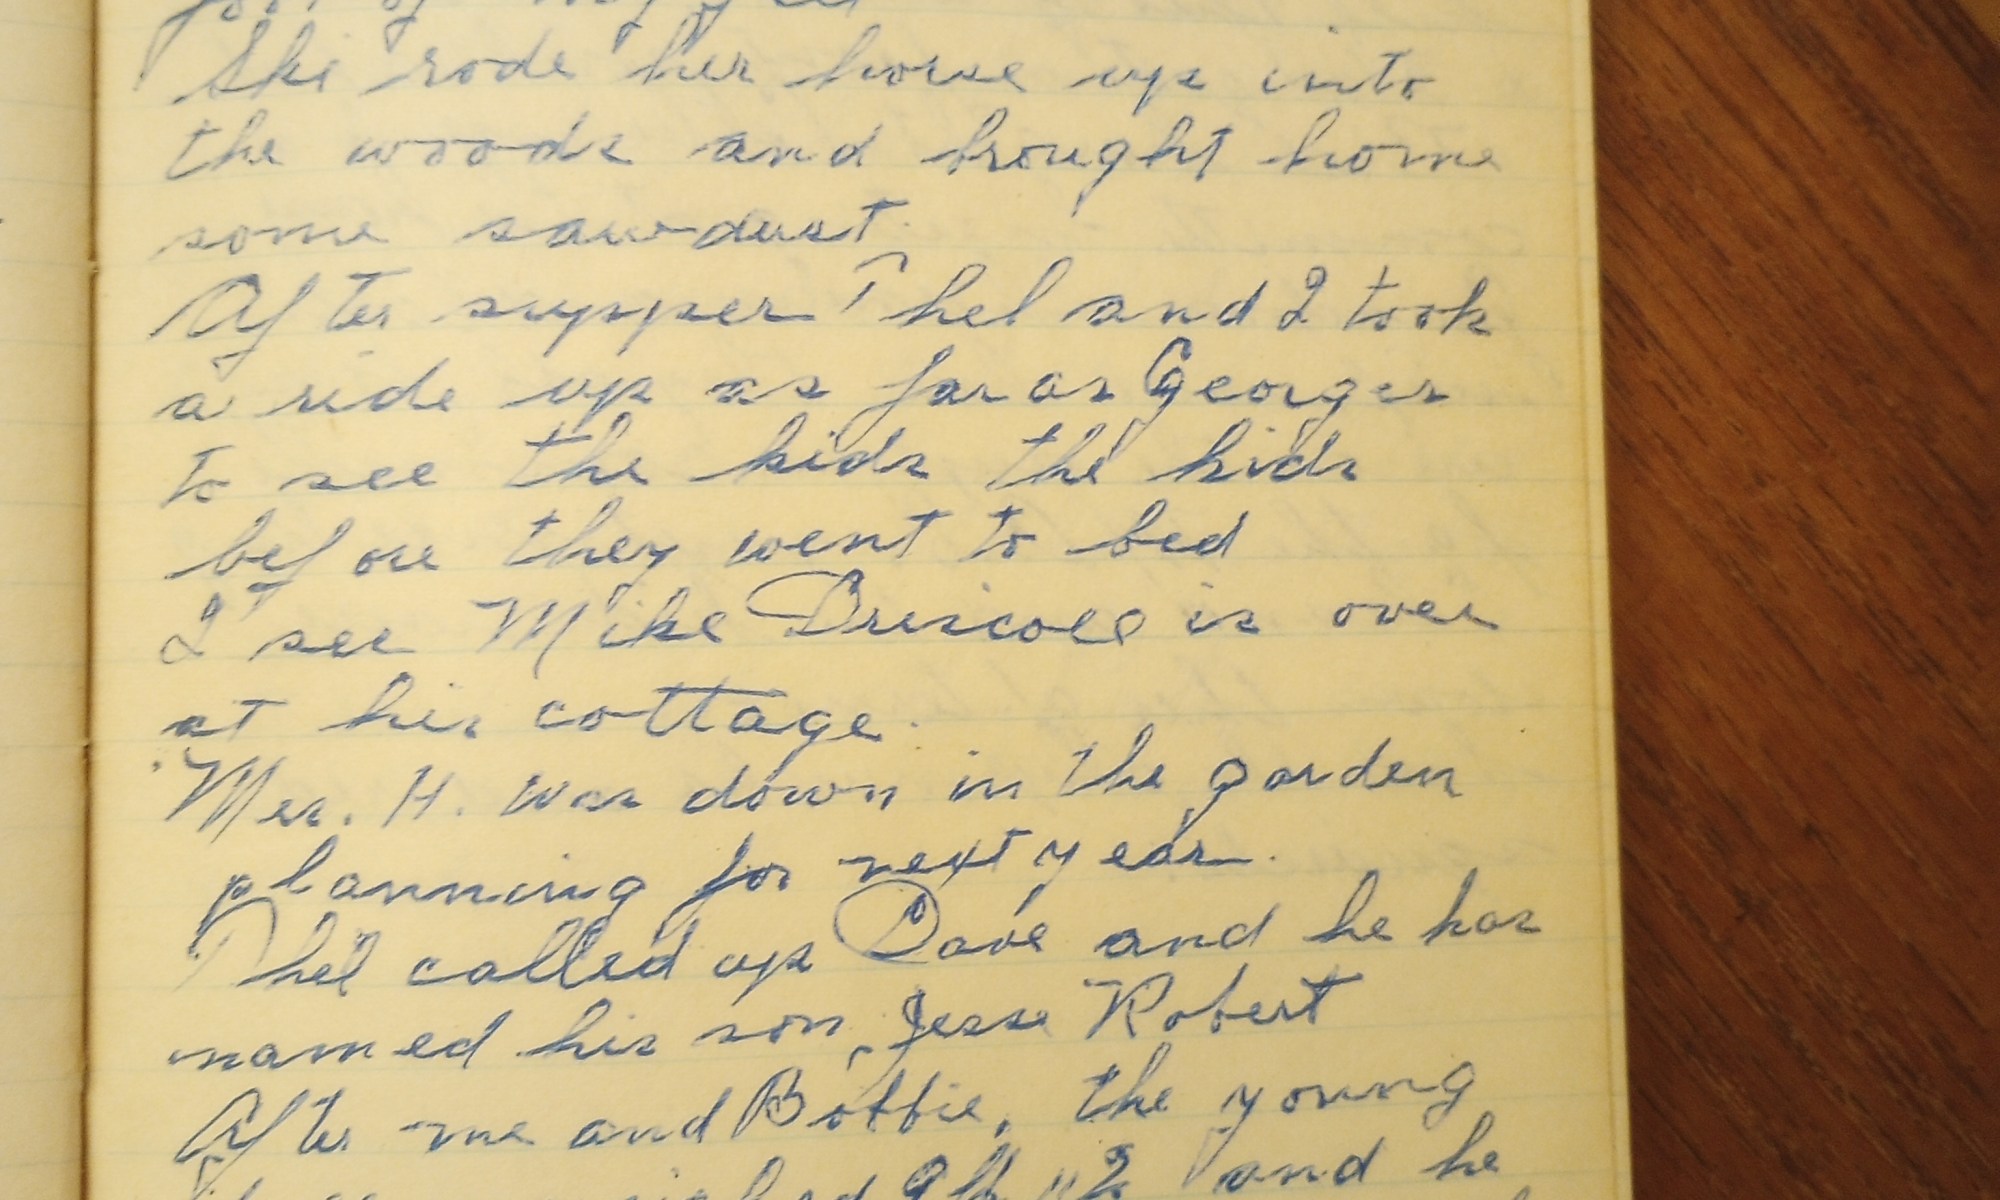 She rode her horse up into
the woods and brought home
some sawdust.
After supper Thel and I took
a ride up as far as Georges
to see the kids the kids
before they went to bed
I see Mike Driscoll is over
at his cottage.
Mrs. H. was down in the garden
planning for next year.
Thel called up Dave and he has
named his son, Jesse Robert
After me and Bobbie, the young
and he